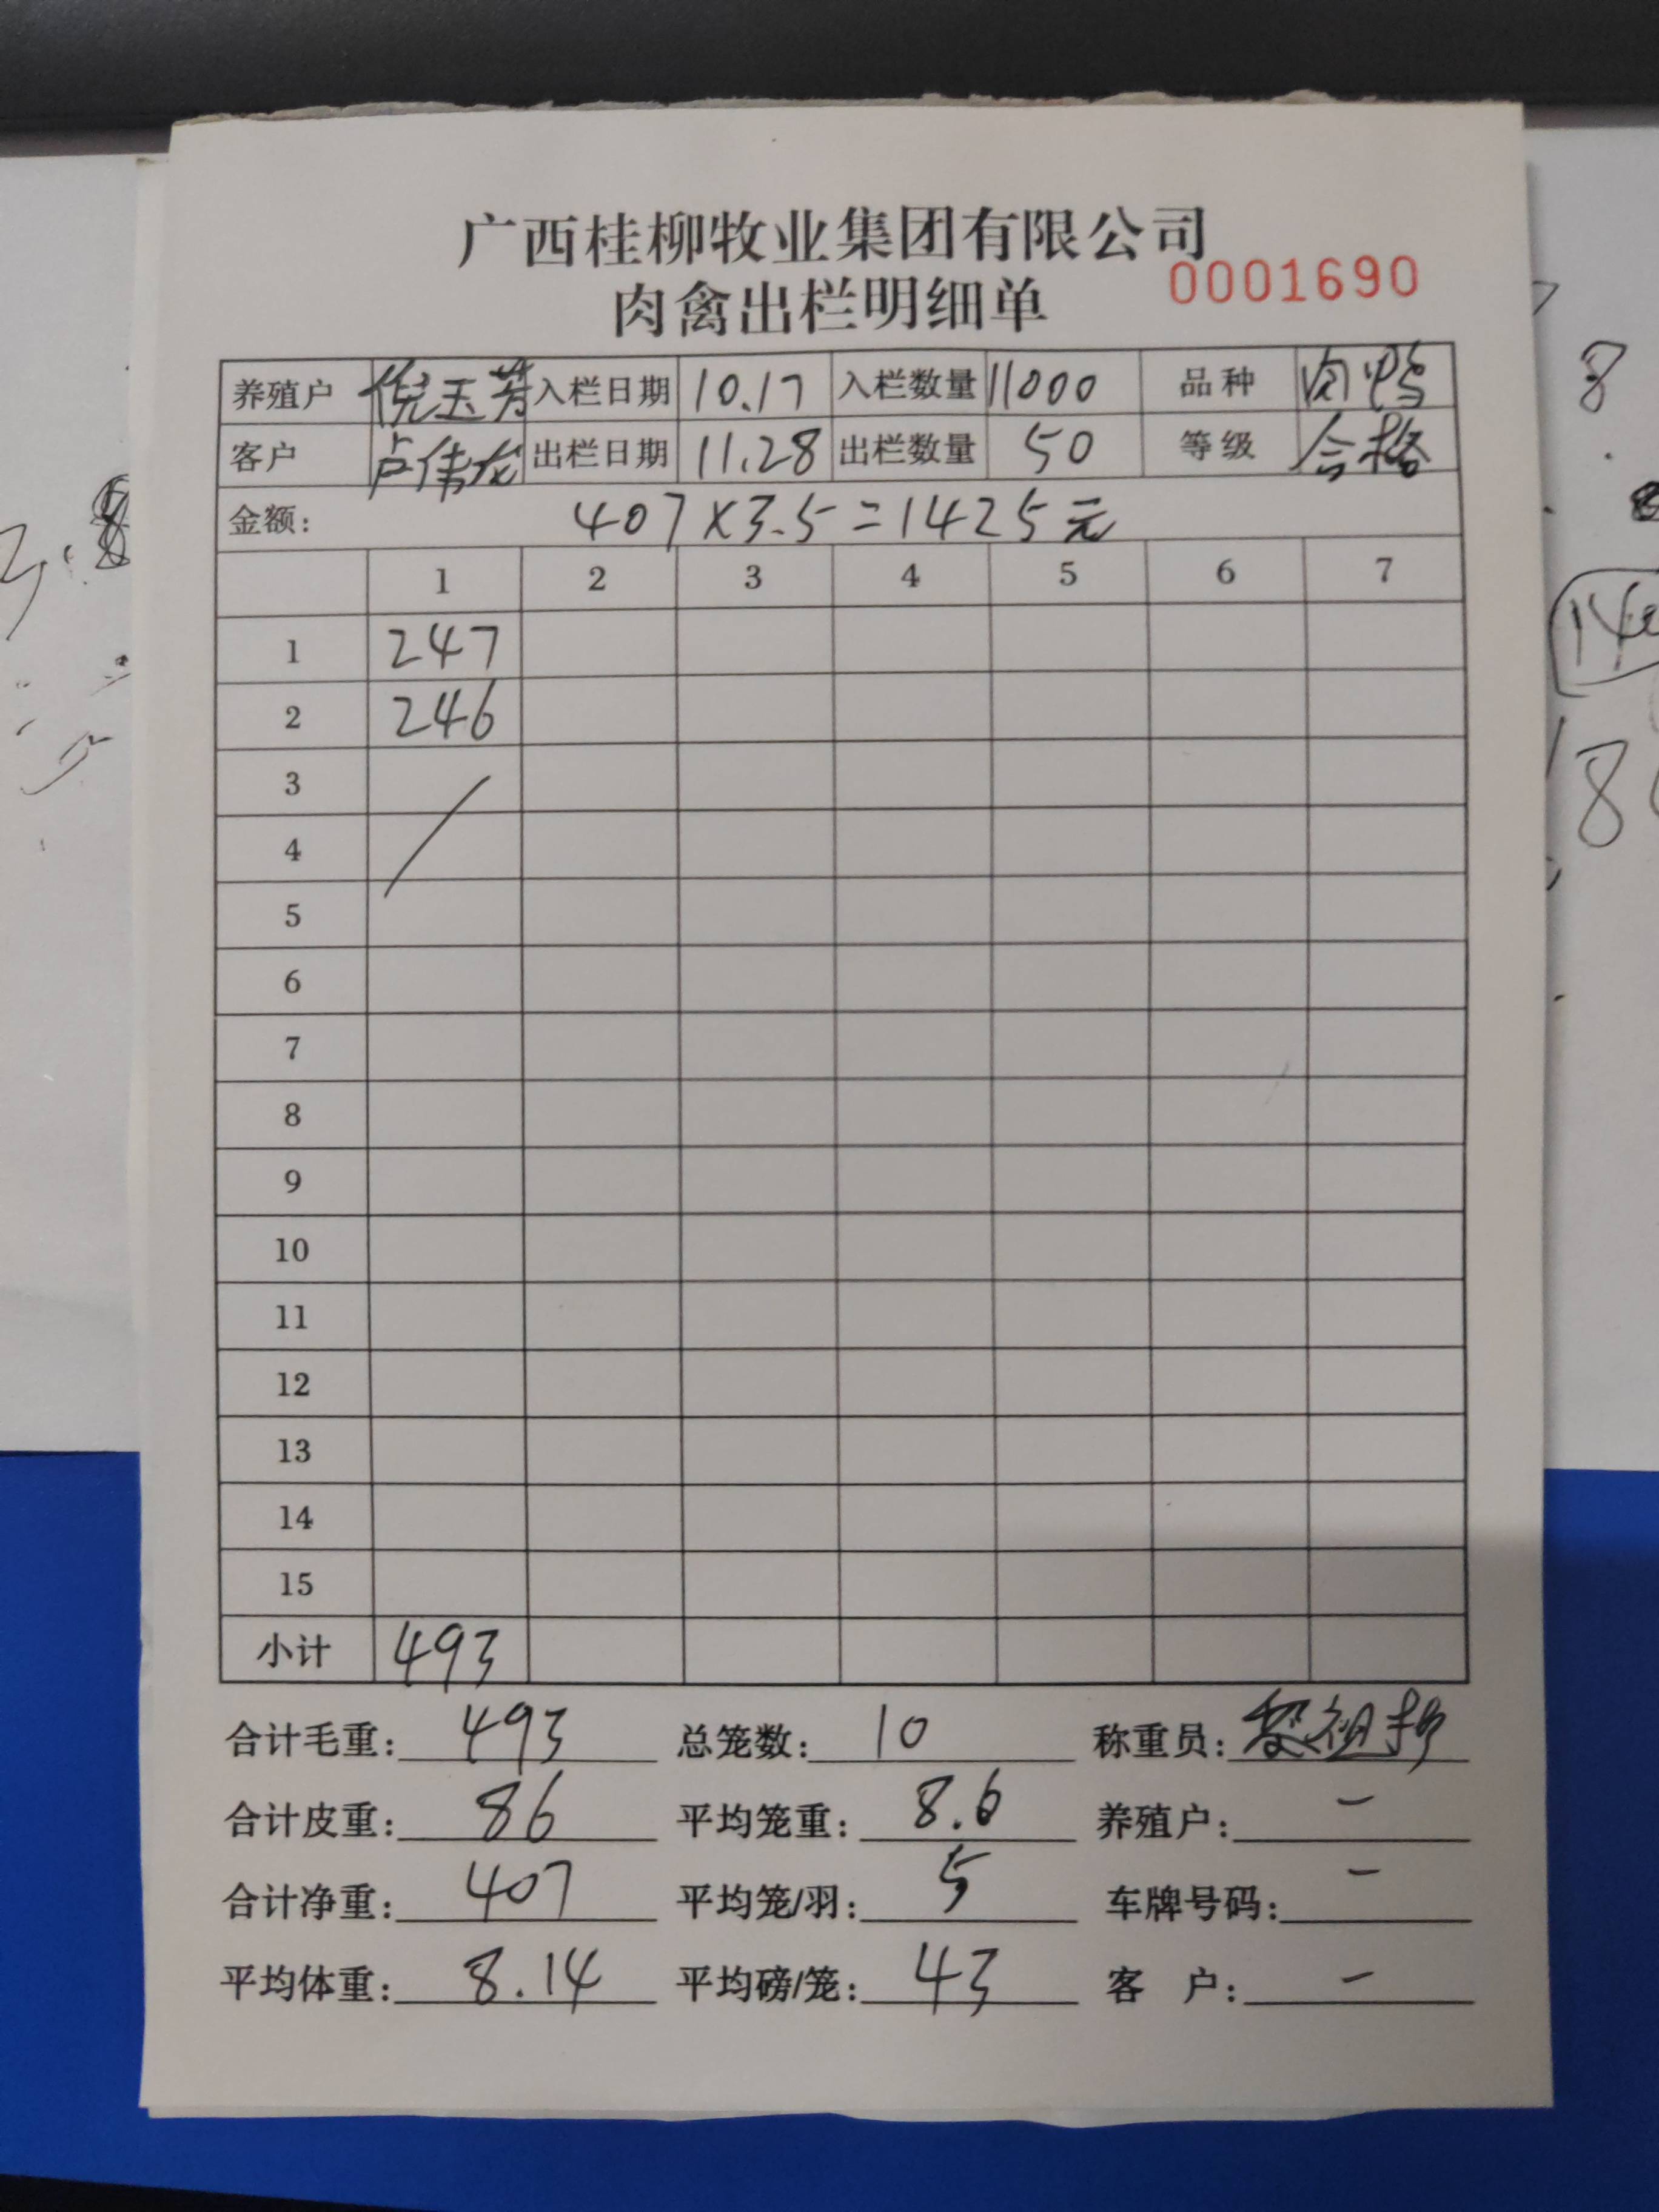 广西桂柳牧业集团有限公司
肉禽出栏明细单 0001690
养殖户 倪玉芳 入栏日期 10.17 入栏数量 11000 品种 肉鸭
客户 卢伟龙 出栏日期 11.28 出栏数量 50 等级 合格
金额: 407×3.5=1425元
1 2 3 4 5 6 7
1 247
2 246
3
4
5
6
7
8
9
10
11
12
13
14
15
小计 493
合计毛重: 493 总笼数: 10 称重员:
合计皮重: 86 平均笼重: 8.6 养殖户: —
合计净重: 407 平均笼/羽: 5 车牌号码: —
平均体重: 8.14 平均磅/笼: 43 客 户: —